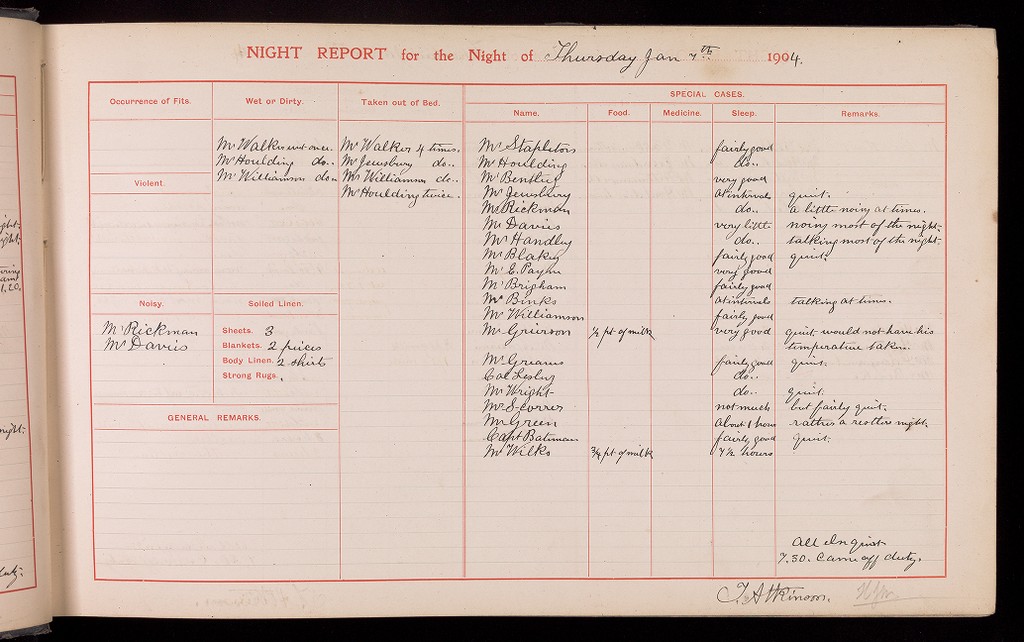 NIGHT REPORT for the Night of Thursday Jan 7th 1904.
SPECIAL CASES.
Occurrence of Fits. Wet or Dirty. Taken out of Bed. Name. Food. Medicine. Sleep. Remarks.
Mr Walker wet once. Mr Walker 4 times. Mr Stapleton fairly good
Mr Houlding do.. Mr Jewsbury do.. Mr Houlding do..
Mr Williamson do.. Mr Williamson do.. Mr Bentley very good
Violent.
Mr Houlding twice. Mr Jewsbury at intervals quiet.
Mr Rickman do.. a little noisy at times.
Mr Davies very little noisy most of the night.
Mr Handley do.. talking most of the night.
Mr Blakey fairly good quiet.
Mr E. Payne very good
Mr Brigham fairly good
Noisy. Soiled Linen.
Mr Binks at intervals talking at times.
Mr Williamson fairly good
Mr Rickman Sheets. 3 Mr Grierson ½ pt of milk very good quiet would not have his
Mr Davies Blankets. 2 pieces temperature taken.
Body Linen. 2 shirts Mr Greaves fairly good quiet.
Strong Rugs. Col Lesley do..
Mr Wright do.. quiet.
Mr Scorrer not much but fairly quiet.
GENERAL REMARKS.
Mr Green about 1 hour rather a restless night.
Capt Bateman fairly good quiet.
Mr Wilks ¾ pt of milk 7½ hours
All Else quiet
7.30. Came off duty.
T. Atkinson.
night.
duty.